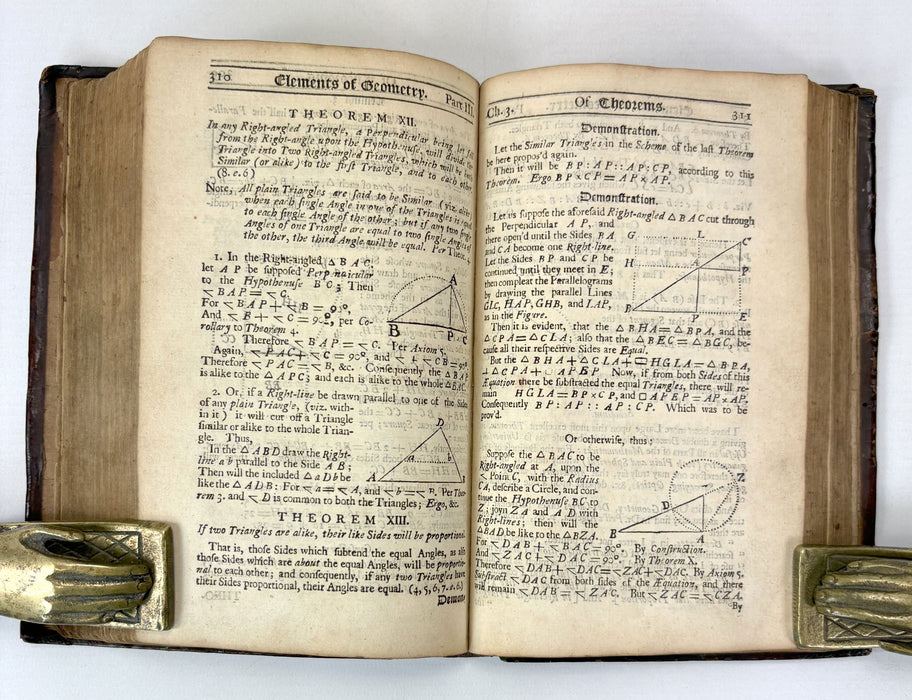 310 Elements of Geometry. Part III.
THEOREM XII.
In any Right-angled Triangle, a Perpendicular being let fall
from the Right-angle upon the Hypothenuse, will divide the
Triangle into Two Right-angled Triangles, which will be both
Similar (or alike) to the first Triangle, and to each other
(8. e. 6)
Note, All plain Triangles are said to be Similar (viz. alike)
when each single Angle in one of the Triangles is equal
to each single Angle of the other; but if any two single
Angles of one Triangle are equal to two single Angles of
the other, the third Angle will be equal. Per Theor. 4
1. In the Right-angled △ B A C,
let A P be supposed Perpendicular
to the Hypothenuse B C; Then
∢ B A P = ∢ C.
For ∢ B A P + ∢ B = 90°,
And ∢ B + ∢ C = 90°, per Co-
rollary to Theorem 4.
Therefore ∢ B A P = ∢ C. Per Axiom 5.
Again, ∢ P A C + ∢ C = 90°, and ∢ + ∢ C B = 90°
Therefore ∢ P A C = ∢ B, &c. Consequently the △ B A P
is alike to the △ A P C; and each is alike to the whole △ B A C.
2. Or, if a Right-line be drawn parallel to one of the Sides
of any plain Triangle, (viz. with-
in it) it will cut off a Triangle
similar or alike to the whole Trian-
gle. Thus,
In the △ A B D draw the Right-
line a b parallel to the Side A B;
Then will the included △ a D b be
like the △ A D B: For ∢ a = ∢ A, and ∢ b = ∢ B. Per Theo-
rem 3. and ∢ D is common to both the Triangles; Ergo, &c.
THEOREM XIII.
If two Triangles are alike, their like Sides will be proportional.
That is, those Sides which subtend the equal Angles, as also
those Sides which are about the equal Angles, will be proportio-
nal to each other; and consequently, if any two Triangles have
their Sides proportional, their Angles are equal. (4, 5, 6, 7. e. 6.)
Demon-
A
B
P
C
D
a
b
A
B
Ch. 3. Of Theorems. 311
Demonstration.
Let the Similar Triangles in the Scheme of the last Theorem
be here propos'd again.
Then it will be B P : A P :: A P : C P, according to this
Theorem. Ergo B P × C P = A P × A P.
Demonstration.
Let us suppose the aforesaid Right-angled △ B A C cut through
the Perpendicular A P, and
there open'd until the Sides B A
and C A become one Right-line.
Let the Sides B P and C P be
continued until they meet in E;
then compleat the Parallelograms
by drawing the parallel Lines
G L C, H A P, G H B, and L A P,
as in the Figure.
Then it is evident, that the △ B H A = △ B P A, and the
△ C P A = △ C L A; also that the △ B E C = △ B G C, be-
cause all their respective Sides are Equal.
But the △ B H A + △ C L A + □ H G L A = △ B P A,
+ △ C P A + □ A P E P Now, if from both Sides of this
Æquation there be substracted the equal Triangles, there will re-
main H G L A = B P × C P, and □ A P E P = A P × A P.
Consequently B P : A P :: A P : C P. Which was to be
prov'd.
Or otherwise, thus:
Suppose the △ B A C to be
Right-angled at A, upon the
∢ Point C, with the Radius
C A, describe a Circle, and con-
tinue the Hypothenuse B C to
Z; join Z A and A D with
Right-lines; then will the
△ B A D be like to the △ B Z A.
For ∢ D A B + ∢ B A C = 90°. By Construction.
And ∢ Z A C + ∢ D A C = 90°. By Theorem X.
Therefore ∢ D A B + ∢ D A C = ∢ Z A C + ∢ D A C. By Axiom 5.
Substract ∢ D A C from both sides of the Æquation, and there
will remain ∢ D A B = ∢ Z A C. But ∢ Z A C = ∢ C Z A.
By
G
L
C
H
A
P
B
P
E
Z
D
B
A